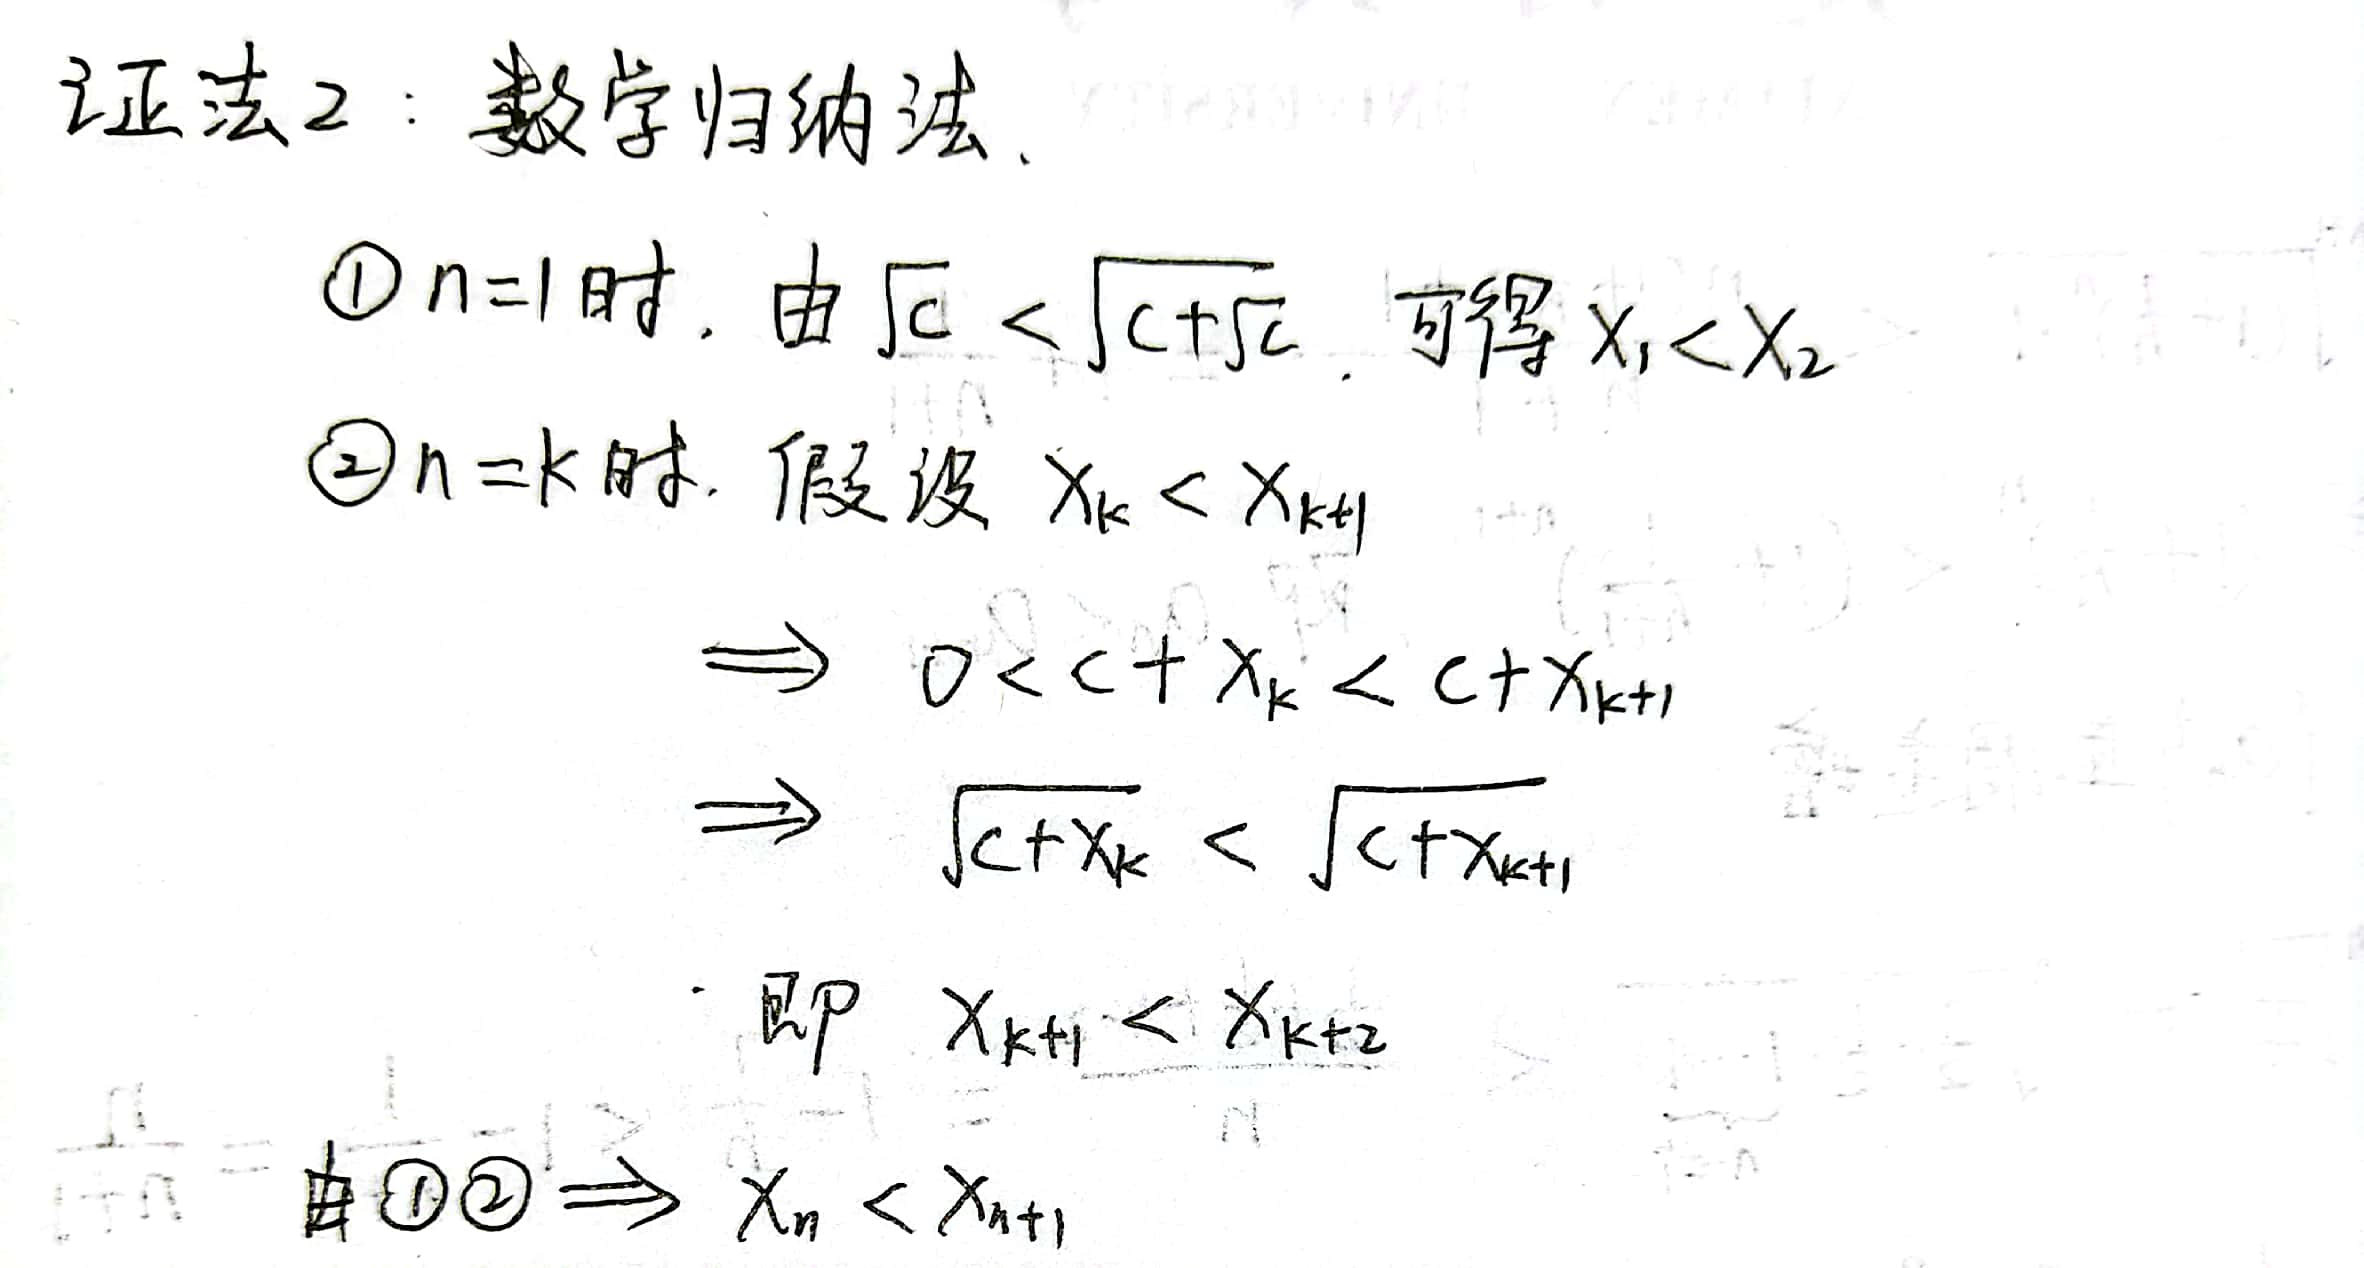 证法2：数学归纳法.
① n=1时. 由 √c < √(c+√c). 可得 x₁<x₂
② n=k时. 假设 xₖ < xₖ₊₁
⇒ 0 < c + xₖ < c + xₖ₊₁
⇒ √(c+xₖ) < √(c+xₖ₊₁)
即 xₖ₊₁ < xₖ₊₂
由①② ⇒ xₙ < xₙ₊₁